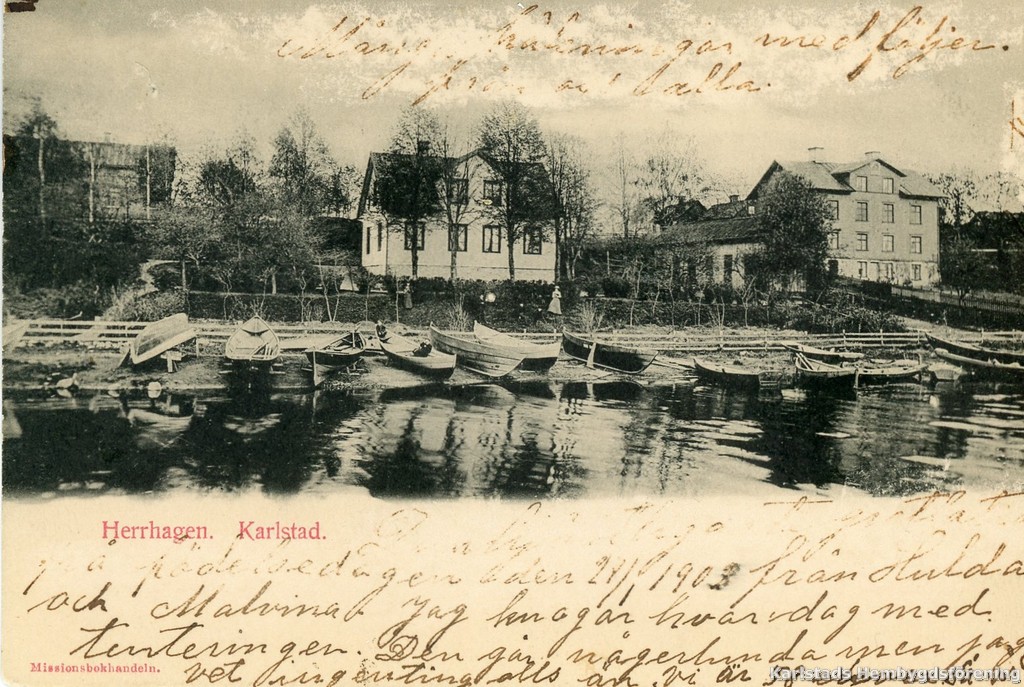 Många hälsningar med följer.
från alla.
Herrhagen. Karlstad.
på födelsedagen den 21/1 1903 från Hulda
och Malvina. Jag knogar hvar dag med
tenteringen. Den går någerlunda men jag
vet ingenting alls än, vi är
Missionsbokhandeln.
Karlstads Hembygdsförening